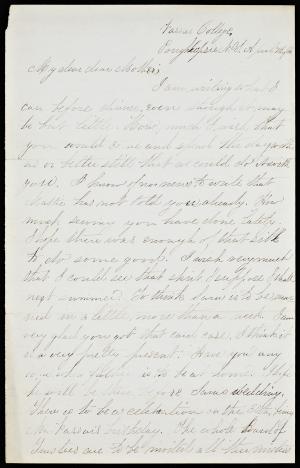 Vassar College,
Poughkeepsie N.Y. April
My dear dear Mother,
I am writing what I
can before dinner, even though it may
be but little. How much I wish that
you would come and spend the day with
us or better still that we could do it with
you. I know of no news to write that
Mattie has not told you already. How
much sewing you have done lately.
I hope there was enough of that silk
to do some good. I wish very much
that I could see that skirt I suppose I shall
next summer. To think Sara is to be mar-
ried in a little more than a week. I am
very glad you got that card case. I think it
is a very pretty present. Have you any
idea when father is to be at home. I hope
he will be there before Sara's wedding.
There is to be a celebration on the 29th, being
Mr. Vassar's birthday. The whole board of
Trustees are to be invited all the